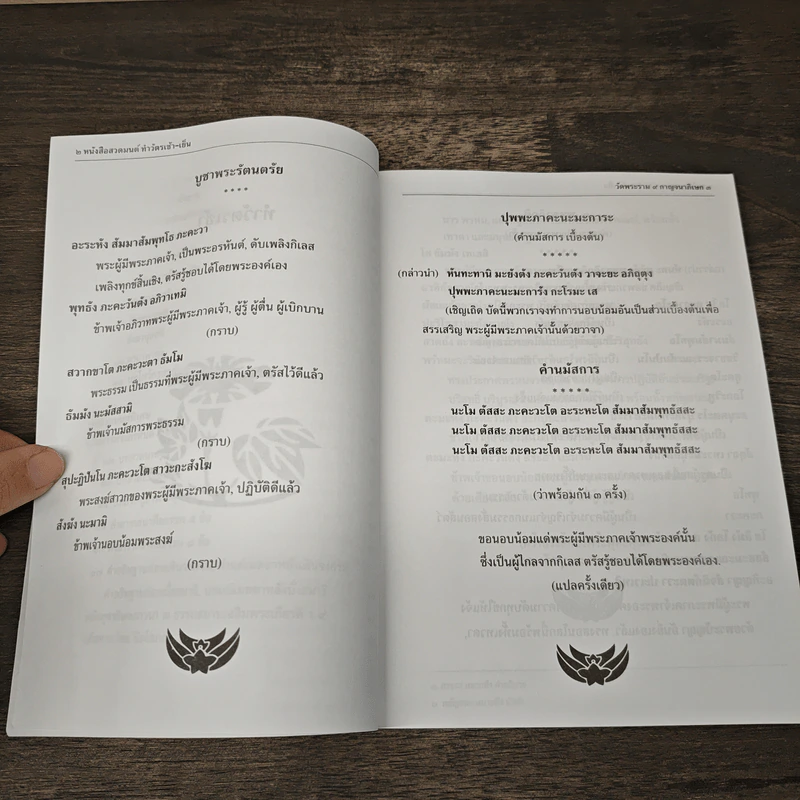 ๒ หนังสือสวดมนต์ ทำวัตรเช้า-เย็น
บูชาพระรัตนตรัย
* * * *
อะระหัง สัมมาสัมพุทโธ ภะคะวา
พระผู้มีพระภาคเจ้า, เป็นพระอรหันต์, ดับเพลิงกิเลส
เพลิงทุกข์สิ้นเชิง, ตรัสรู้ชอบได้โดยพระองค์เอง
พุทธัง ภะคะวันตัง อภิวาเทมิ
ข้าพเจ้าอภิวาทพระผู้มีพระภาคเจ้า, ผู้รู้ ผู้ตื่น ผู้เบิกบาน
(กราบ)
สวากขาโต ภะคะวะตา ธัมโม
พระธรรม เป็นธรรมที่พระผู้มีพระภาคเจ้า, ตรัสไว้ดีแล้ว
ธัมมัง นะมัสสามิ
ข้าพเจ้านมัสการพระธรรม
(กราบ)
สุปะฏิปันโน ภะคะวะโต สาวะกะสังโฆ
พระสงฆ์สาวกของพระผู้มีพระภาคเจ้า, ปฏิบัติดีแล้ว
สังฆัง นะมามิ
ข้าพเจ้านอบน้อมพระสงฆ์
(กราบ)
วัดพระราม ๙ กาญจนาภิเษก ๓
ปุพพะภาคะนะมะการะ
(คำนมัสการ เบื้องต้น)
* * * * *
(กล่าวนำ) หันทะทานิ มะยังตัง ภะคะวันตัง วาจะยะ อภิถุตุง
ปุพพะภาคะนะมะการัง กะโรมะ เส
(เชิญเถิด บัดนี้พวกเราจงทำการนอบน้อมอันเป็นส่วนเบื้องต้นเพื่อ
สรรเสริญ พระผู้มีพระภาคเจ้านั้นด้วยวาจา)
คำนมัสการ
* * * * *
นะโม ตัสสะ ภะคะวะโต อะระหะโต สัมมาสัมพุทธัสสะ
นะโม ตัสสะ ภะคะวะโต อะระหะโต สัมมาสัมพุทธัสสะ
นะโม ตัสสะ ภะคะวะโต อะระหะโต สัมมาสัมพุทธัสสะ
(ว่าพร้อมกัน ๓ ครั้ง)
ขอนอบน้อมแด่พระผู้มีพระภาคเจ้าพระองค์นั้น
ซึ่งเป็นผู้ไกลจากกิเลส ตรัสรู้ชอบได้โดยพระองค์เอง.
(แปลครั้งเดียว)